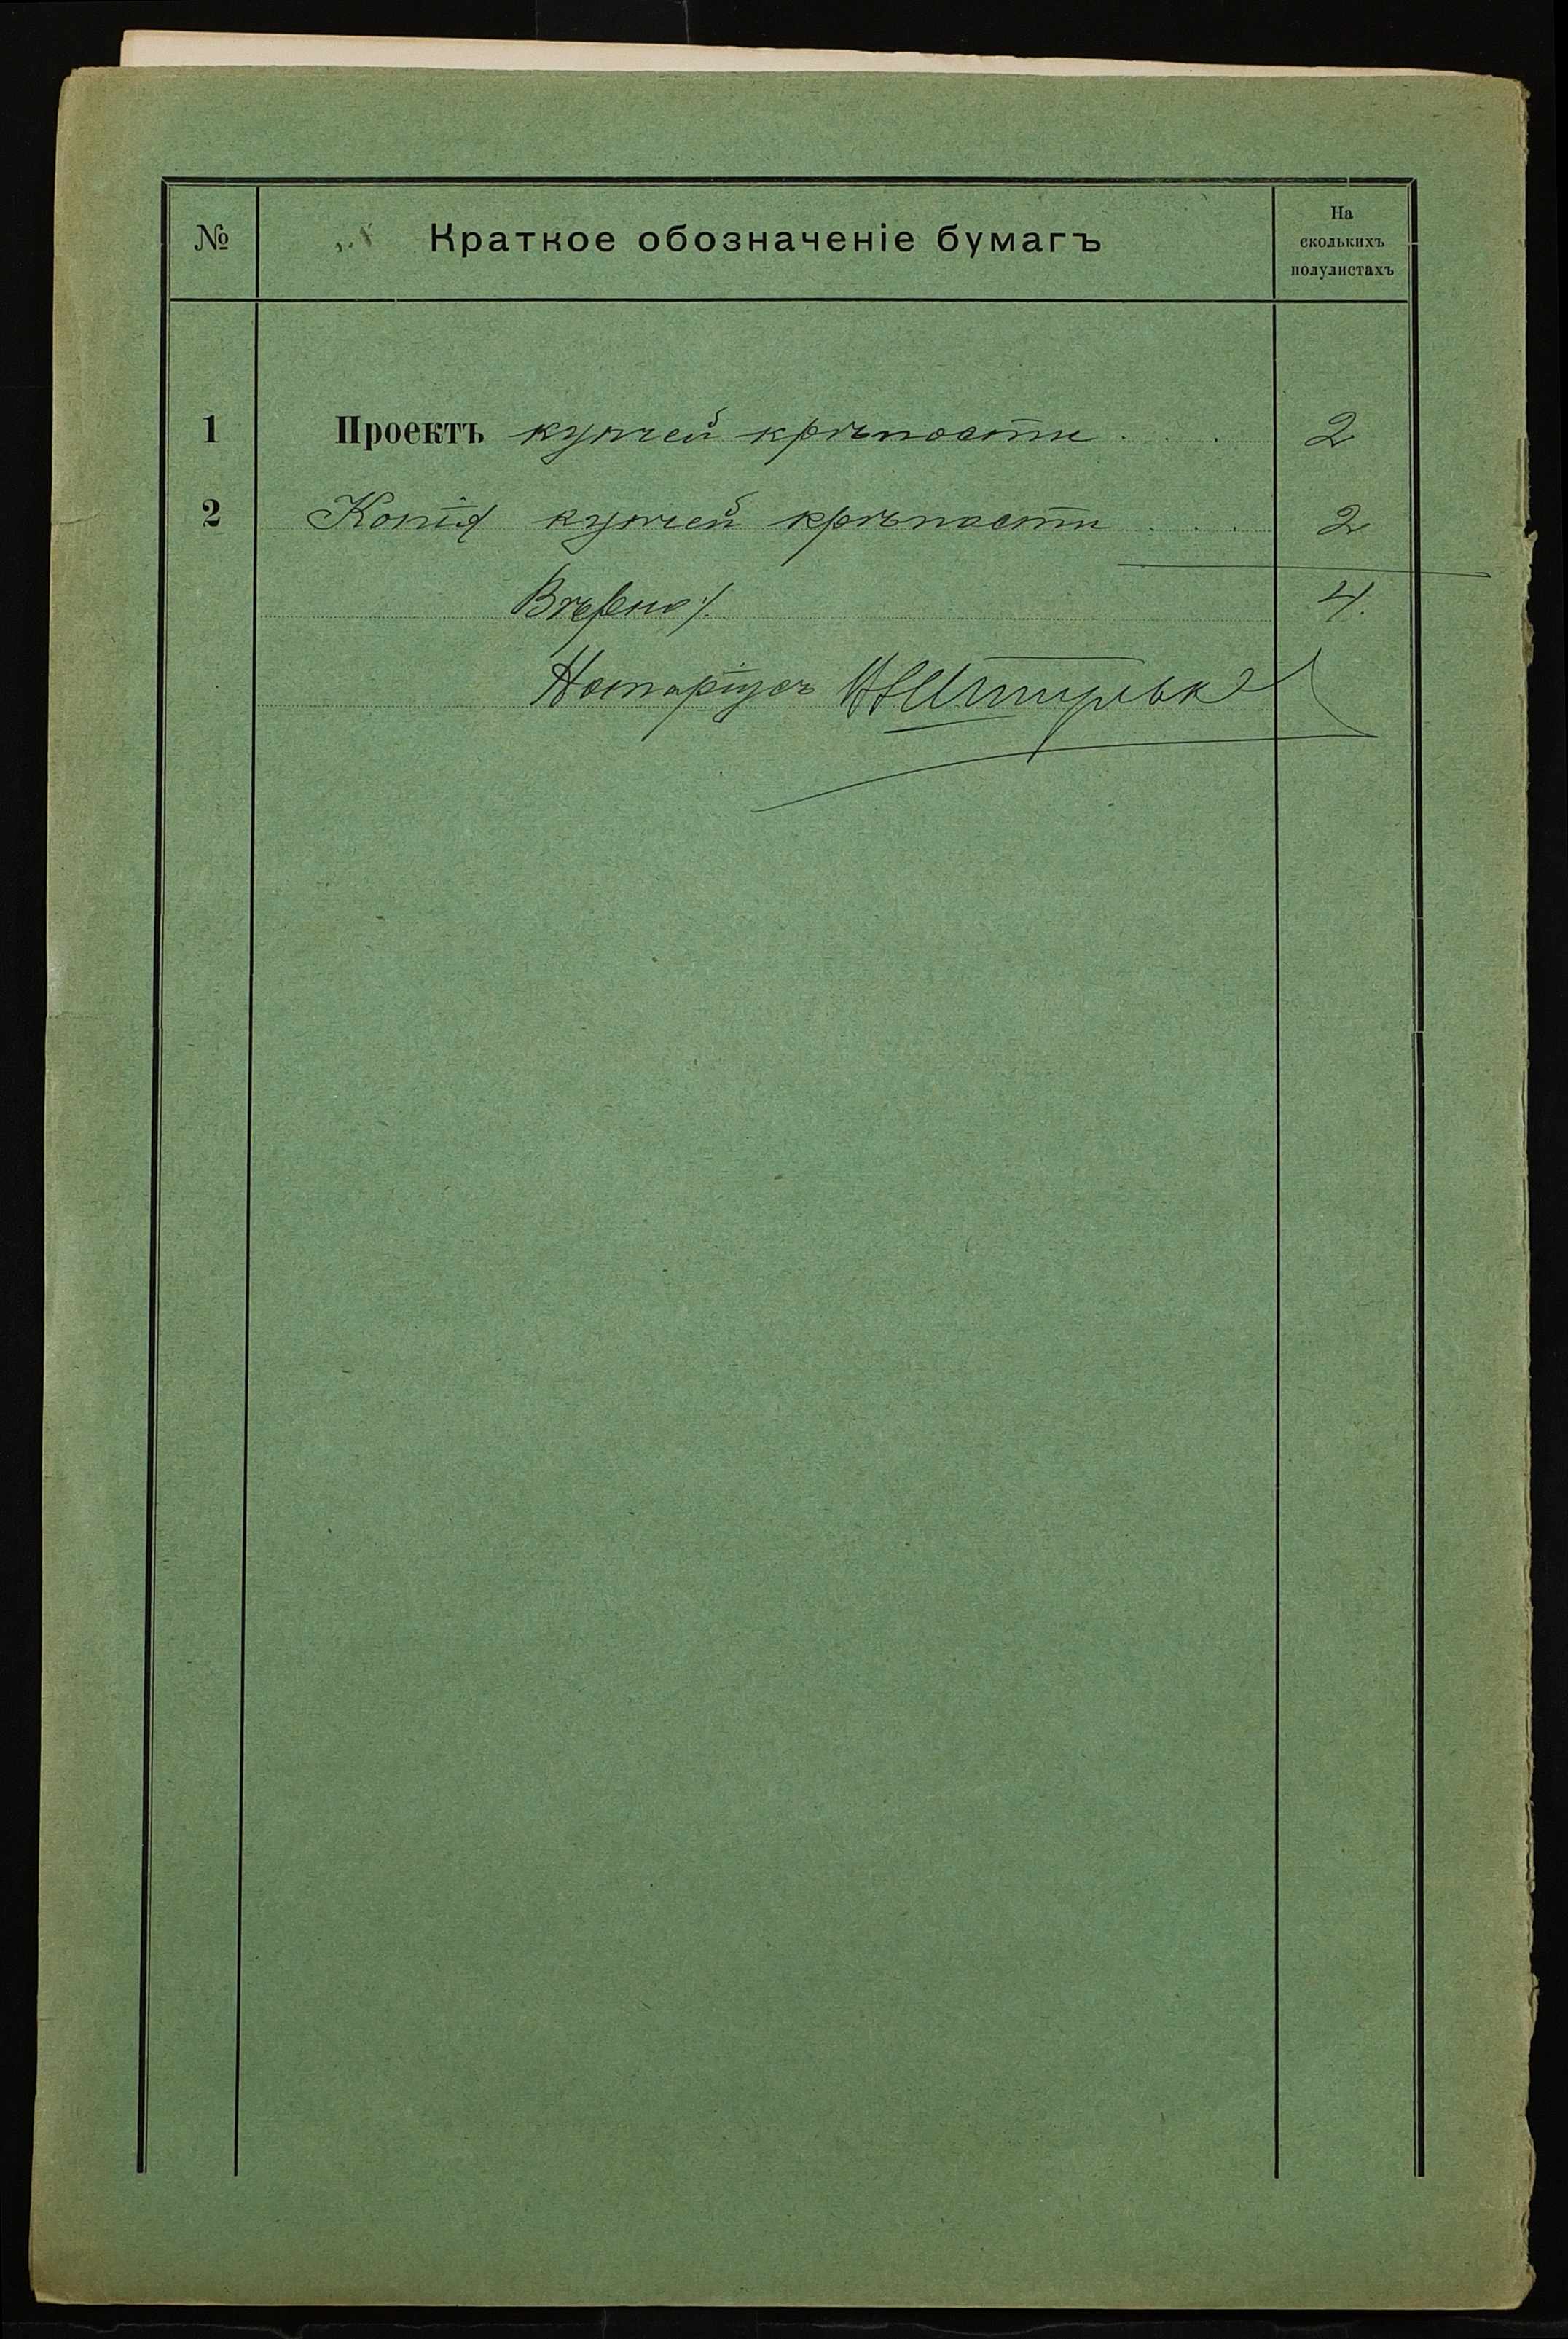 № Краткое обозначеніе бумагъ На
сколькихъ
полулистахъ
1 Проектъ купчей крѣпости . . . . 2
2 Копія купчей крѣпости . . . . 2
Вѣрно: 4.
Нотаріусъ